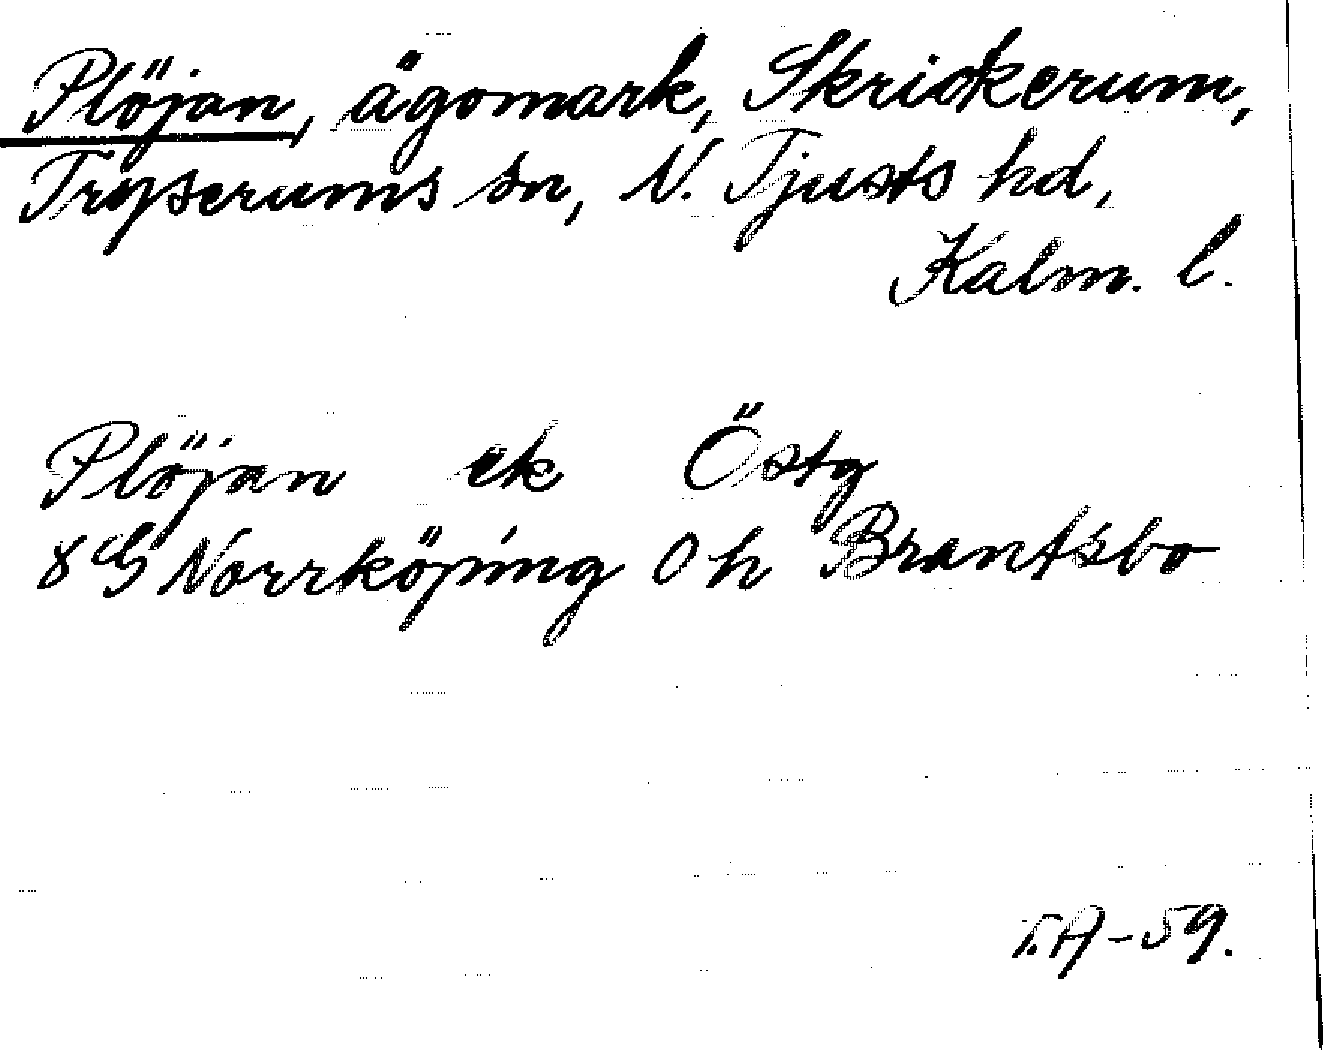 Plöjan, ägomark, Skrickerum,
Tryserums sn, N. Tjusts hd,
Kalm. l.
Plöjan ek Östg
8G Norrköping Oh Brantsbo
T.A-59.